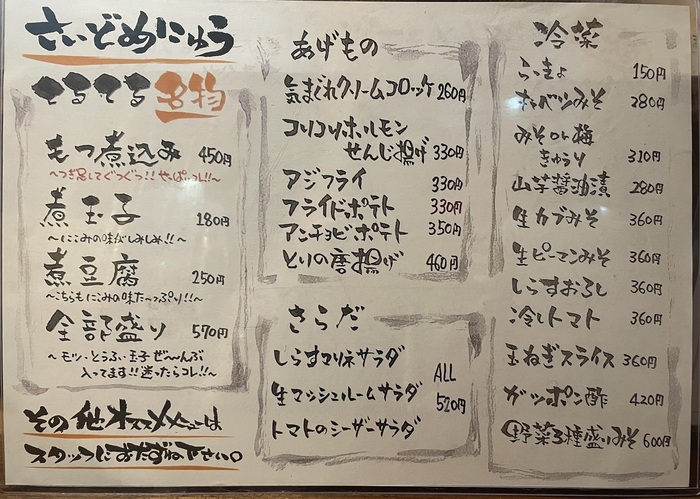 さいどめにゅう
てるてる名物
もつ煮込み 450円
〜つぎ足してぐつぐつ!! やっぱコレ!!〜
煮玉子 180円
〜にこみの味がしみしみ!!〜
煮豆腐 250円
〜こちらもにこみの味た〜っぷり!!〜
全部盛り 570円
〜モツ・とうふ・玉子 ぜ〜んぶ
入ってます!! 迷ったらコレ!!〜
その他オススメメニューは
スタッフにおたずね下さい。
あげもの
気まぐれクリームコロッケ 260円
コリコリホルモン
せんじ揚げ 330円
アジフライ 330円
フライドポテト 330円
アンチョビポテト 350円
とりの唐揚げ 460円
さらだ
しらすマリネサラダ
生マッシュルームサラダ
トマトのシーザーサラダ
ALL
520円
冷菜
らっきょ 150円
キャベツみそ 280円
みそor梅
きゅうり 310円
山芋醤油漬 280円
生カブみそ 360円
生ピーマンみそ 360円
しらすおろし 360円
冷しトマト 360円
玉ねぎスライス 360円
ガツポン酢 420円
野菜3種盛りみそ 600円